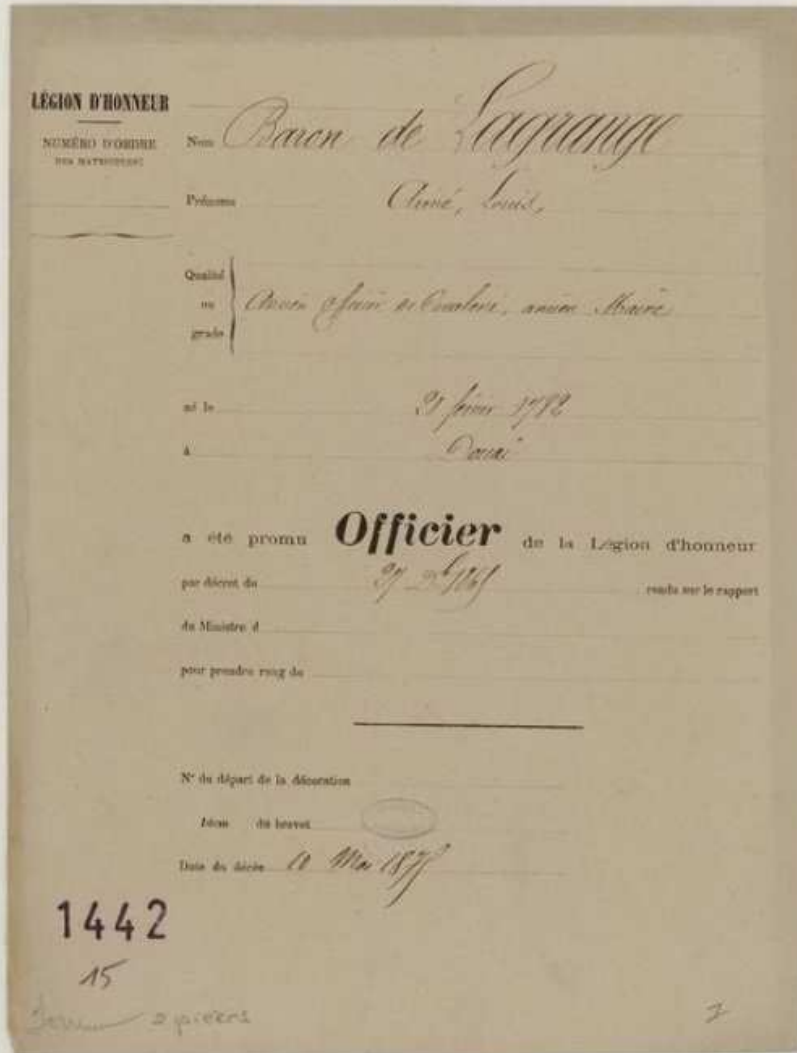 LÉGION D'HONNEUR
NUMÉRO D'ORDRE
DES MATRICULES
Nom Baron de Lagrange
Prénoms Aimé, Louis,
Qualité
ou
grade
Ancien officier de Cavalerie, ancien Maire
né le 21 février 1782
à Douai
a été promu Officier de la Légion d'honneur
par décret du 27 rendu sur le rapport
du Ministre d
pour prendre rang du
N° du départ de la décoration
Idem du brevet
Date du décès 10 Mai 1875
1442
15
2 pièces